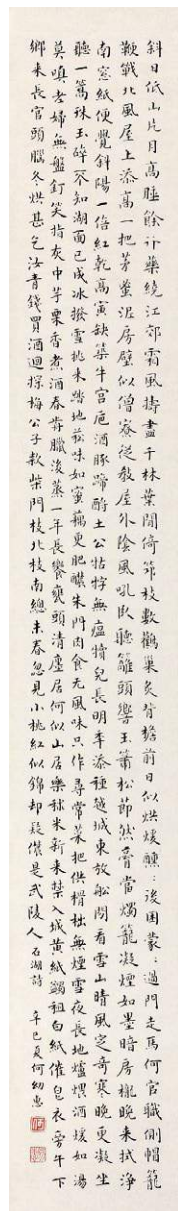 斜日低山片月高睡餘行藥繞江郊霜風擣盡千林葉閒倚筇枝數鸛巢炙背檐前日似烘煖醺醺後困蒙蒙過門走馬何官職側帽籠
鞭戰北風屋上添高一把茅密泥房壁似僧寮從教屋外陰風吼臥聽籬頭響玉簫松節然膏當燭籠凝煙如墨暗房櫳晚來拭淨
南窗紙便覺斜陽一倍紅乾高寅缺築牛宮卮酒豚蹄酹土公牯牸無瘟犢兒長明年添種越城東放船閒看雪山晴風定奇寒晚更凝坐
聽一篙珠玉碎不知湖面已成冰撥雪挑來踏地菘味如蜜藕更肥醲朱門肉食无風味只作尋常菜把供榾柮無煙雪夜長地爐煨酒煖如湯
莫嗔老婦無盤飣笑指灰中芋栗香煮酒春前臘後蒸一年長饗甕頭清廛居何似山居樂秫米新來禁入城黃紙蠲租白紙催皂衣旁午下
鄉來長官頭腦冬烘甚乞汝青錢買酒迴探梅公子款柴門枝北枝南總未春忽見小桃紅似錦却疑儂是武陵人 石湖詩 辛巳夏何幼惠